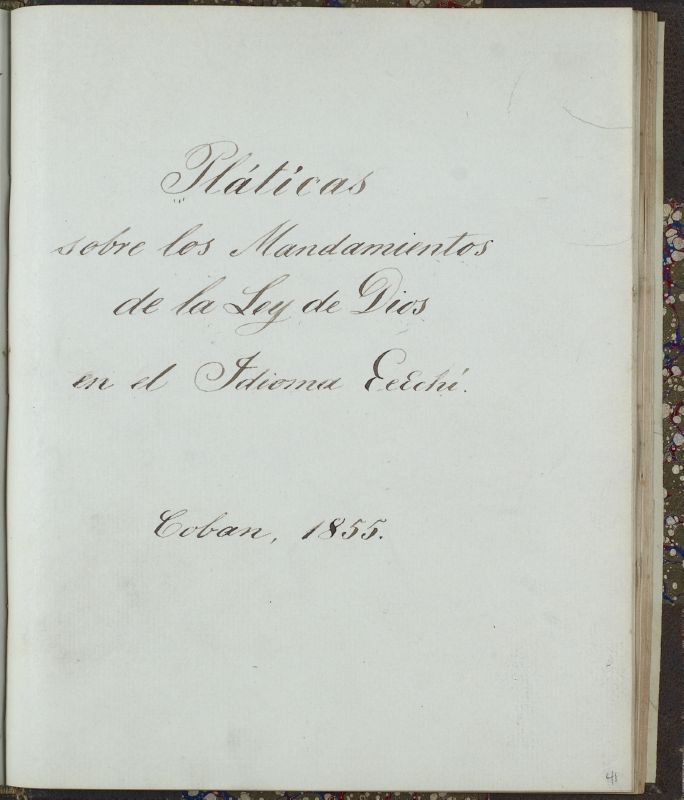 Pláticas
sobre los Mandamientos
de la Ley de Dios
en el Idioma Ɛeɛchí.
Coban, 1855.
41